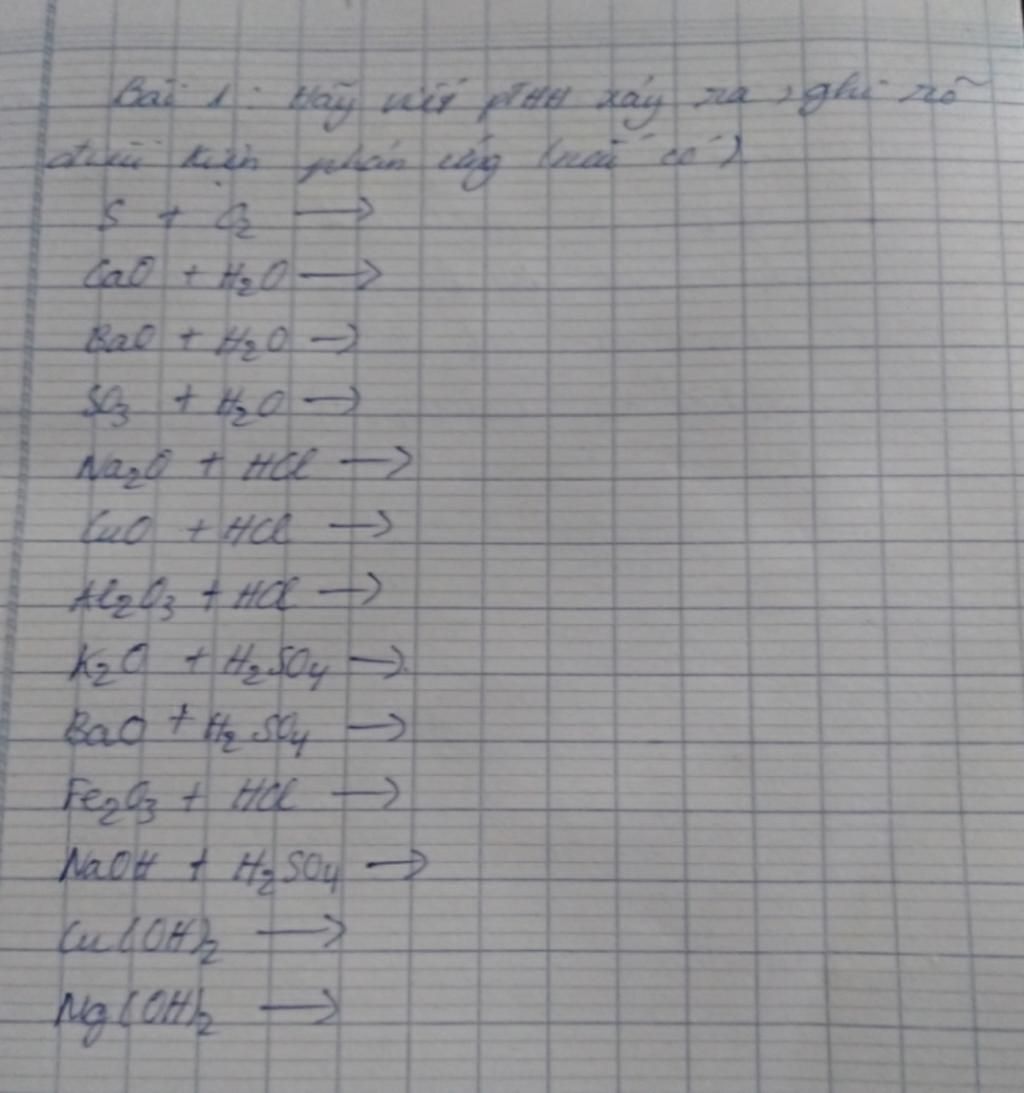 Bài 1: Hãy viết PTHH xảy ra, ghi rõ
điều kiện phản ứng (nếu có)
S + O₂ →
CaO + H₂O →
BaO + H₂O →
SO₃ + H₂O →
Na₂O + HCl →
CuO + HCl →
Al₂O₃ + HCl →
K₂O + H₂SO₄ →
BaO + H₂SO₄ →
Fe₂O₃ + HCl →
NaOH + H₂SO₄ →
Cu(OH)₂ →
Mg(OH)₂ →